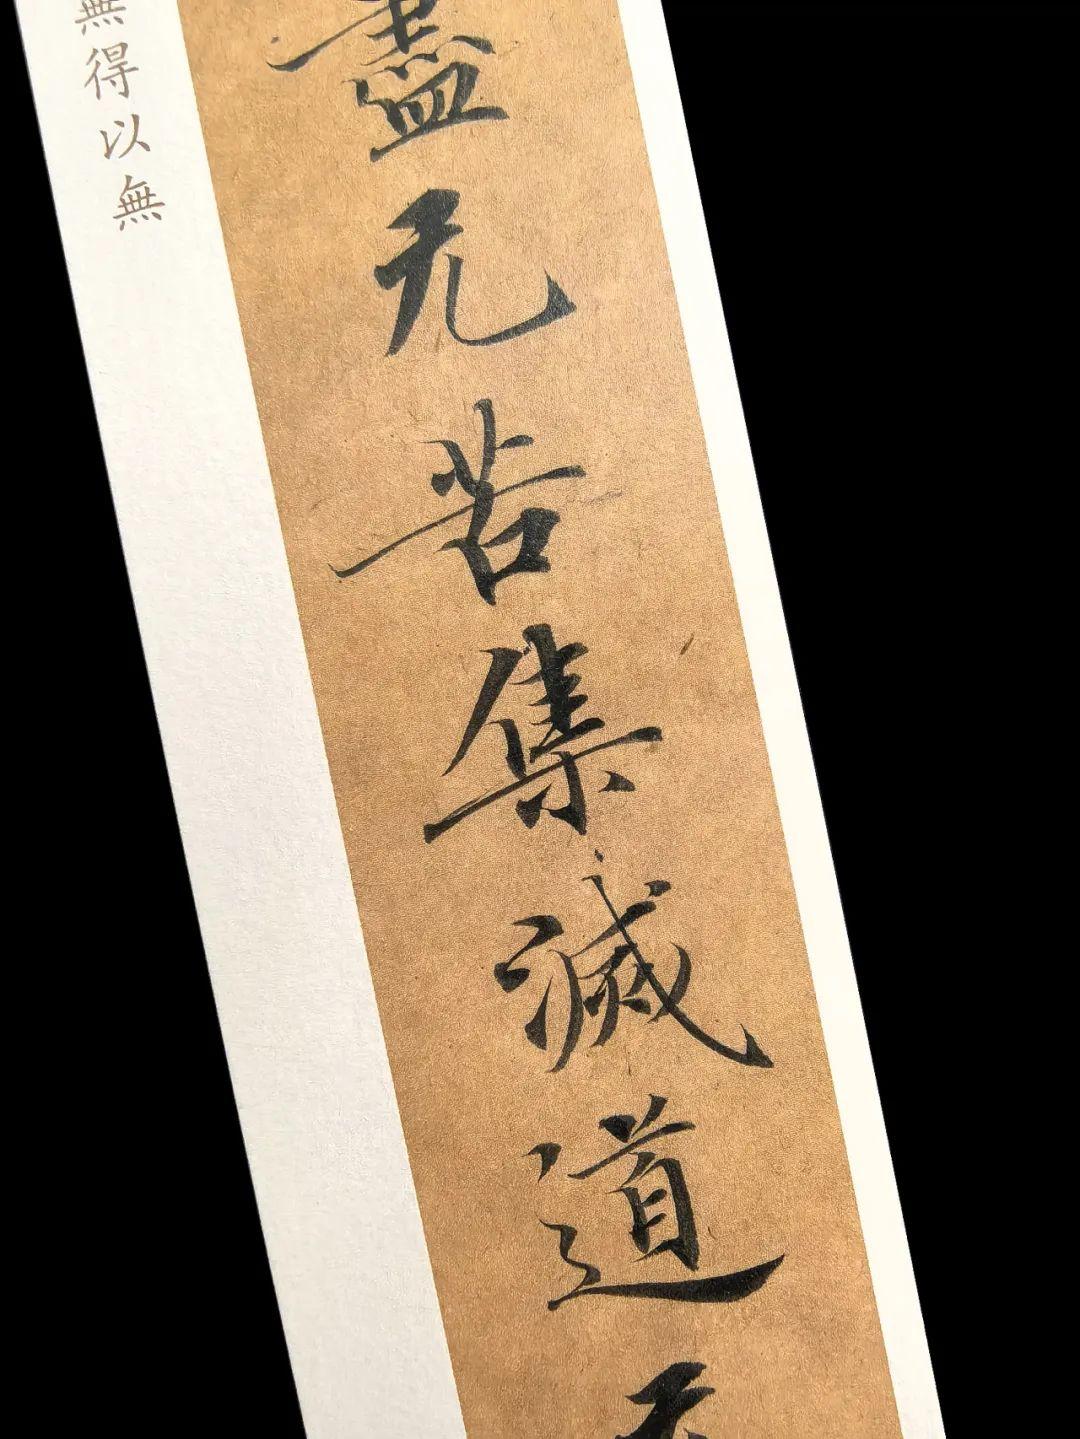 盡无苦集滅道
無得以無